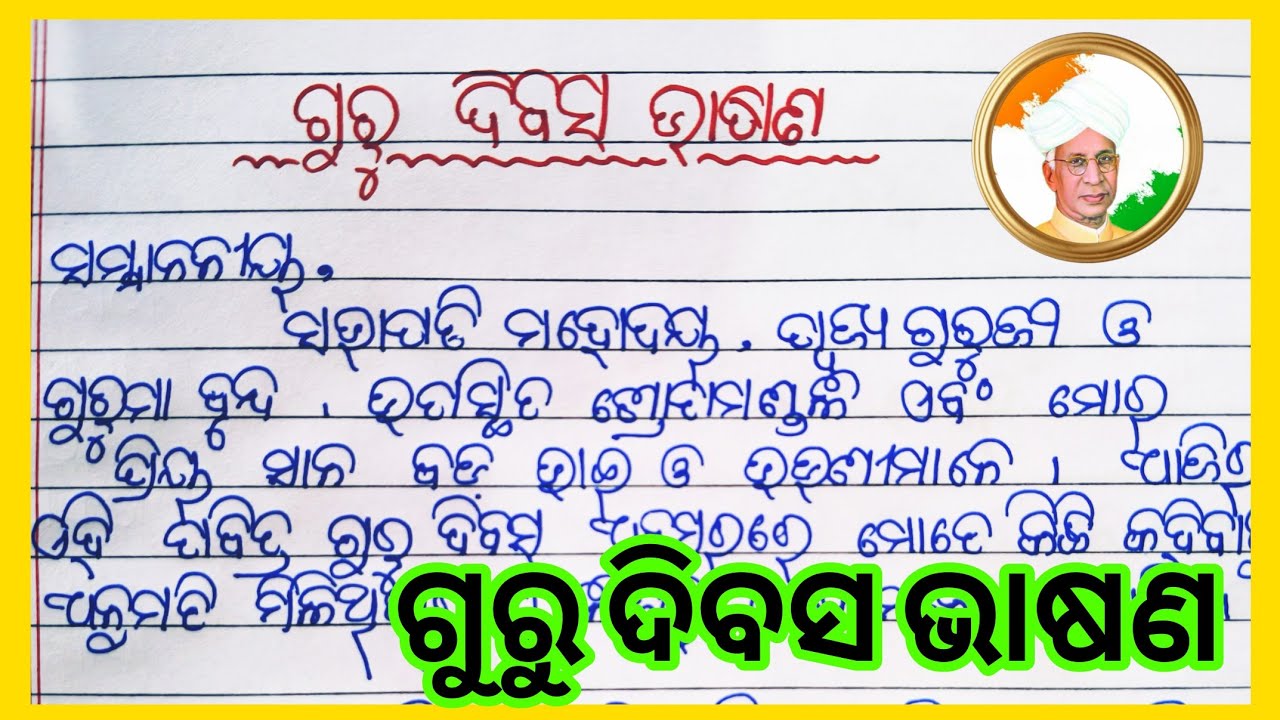 ଗୁରୁ ଦିବସ ଭାଷଣ
ସମ୍ମାନନୀୟ,
ସଭାପତି ମହୋଦୟ, ପୂଜ୍ୟ ଗୁରୁଜୀ ଓ
ଗୁରୁମା ବୃନ୍ଦ, ଉପସ୍ଥିତ ଶ୍ରୋତାମଣ୍ଡଳୀ ଏବଂ ମୋର
ପ୍ରିୟ ସାନ ବଡ ଭାଇ ଓ ଭଉଣୀମାନେ । ଆଜିର
ଏହି ପବିତ୍ର ଗୁରୁ ଦିବସ ଅବସରରେ ମୋତେ କିଛି କହିବାକୁ
ଅନୁମତି ମିଳିଥି
ଗୁରୁ ଦିବସ ଭାଷଣ